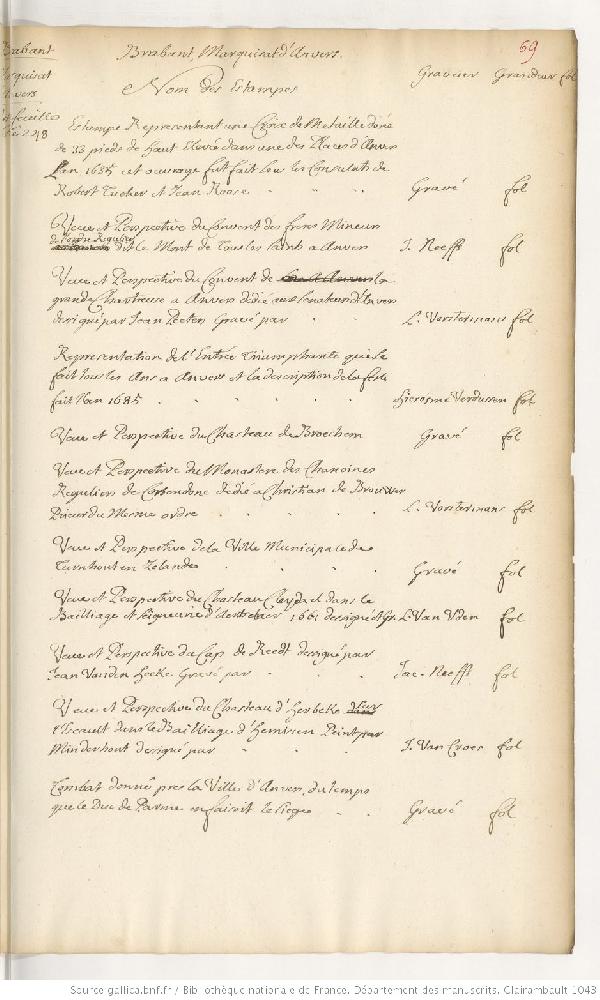 Brabant
Marquisat
d'Anvers
69
Brabant, Marquisat d'Anvers.
Nom Des Estampes
Graveur Grandeur fol
Estampe Representant une Croix de Metaille dorée
de 33 pieds de haut Elevée dans une des Places d'Anvers
l'an 1685 cet ouvrage fut fait sous les Consulats de
Robert Tucher et Jean Roose
Gravé fol
Veue et Perspective du Couvent des freres Mineurs
dit le Mont de Tous les saints a Anvers J. Neefft fol
Veue et Perspective du Convent de la
grande Chartreuse a Anvers dedié aux Senateurs d'Anvers
designé par Jean Peeters Gravé par L. Vorstermans fol
Representation de l'Entrée Triumphante qui se
fait tous les Ans a Anvers et la description de la feste
fait l'an 1685 Hierosme Verdussen fol
Veue et Perspective du Chasteau de Broechem Gravé fol
Veue et Perspective du Monastere des Chanoines
Reguliers de Corsendonc dedié a Christian de Brouwer
Prieur du Mesme ordre L. Vorstermans fol
Veue et Perspective de la Ville Municipale de
Turnhout en Zelande Gravé fol
Veue et Perspective du Chasteau Cleydael dans le
Bailliage et seigneurie d'Aertselaer 1661 designé et gr. L. Van Uden fol
Veue et Perspective du Cap de Reedt designé par
Jean Vanden Hecke Gravé par Jac. Neefft fol
Veue et Perspective du Chasteau d'Hersbeke sur
l'Escault dans le Bailliage d'Hemixen Peint par
Minderhout designé par J. Van Croes fol
Combat donné pres la Ville d'Anvers, du temps
que le Duc de Parme en faisoit le siege Gravé fol
Source gallica.bnf.fr / Bibliothèque nationale de France. Département des manuscrits. Clairambault 1043